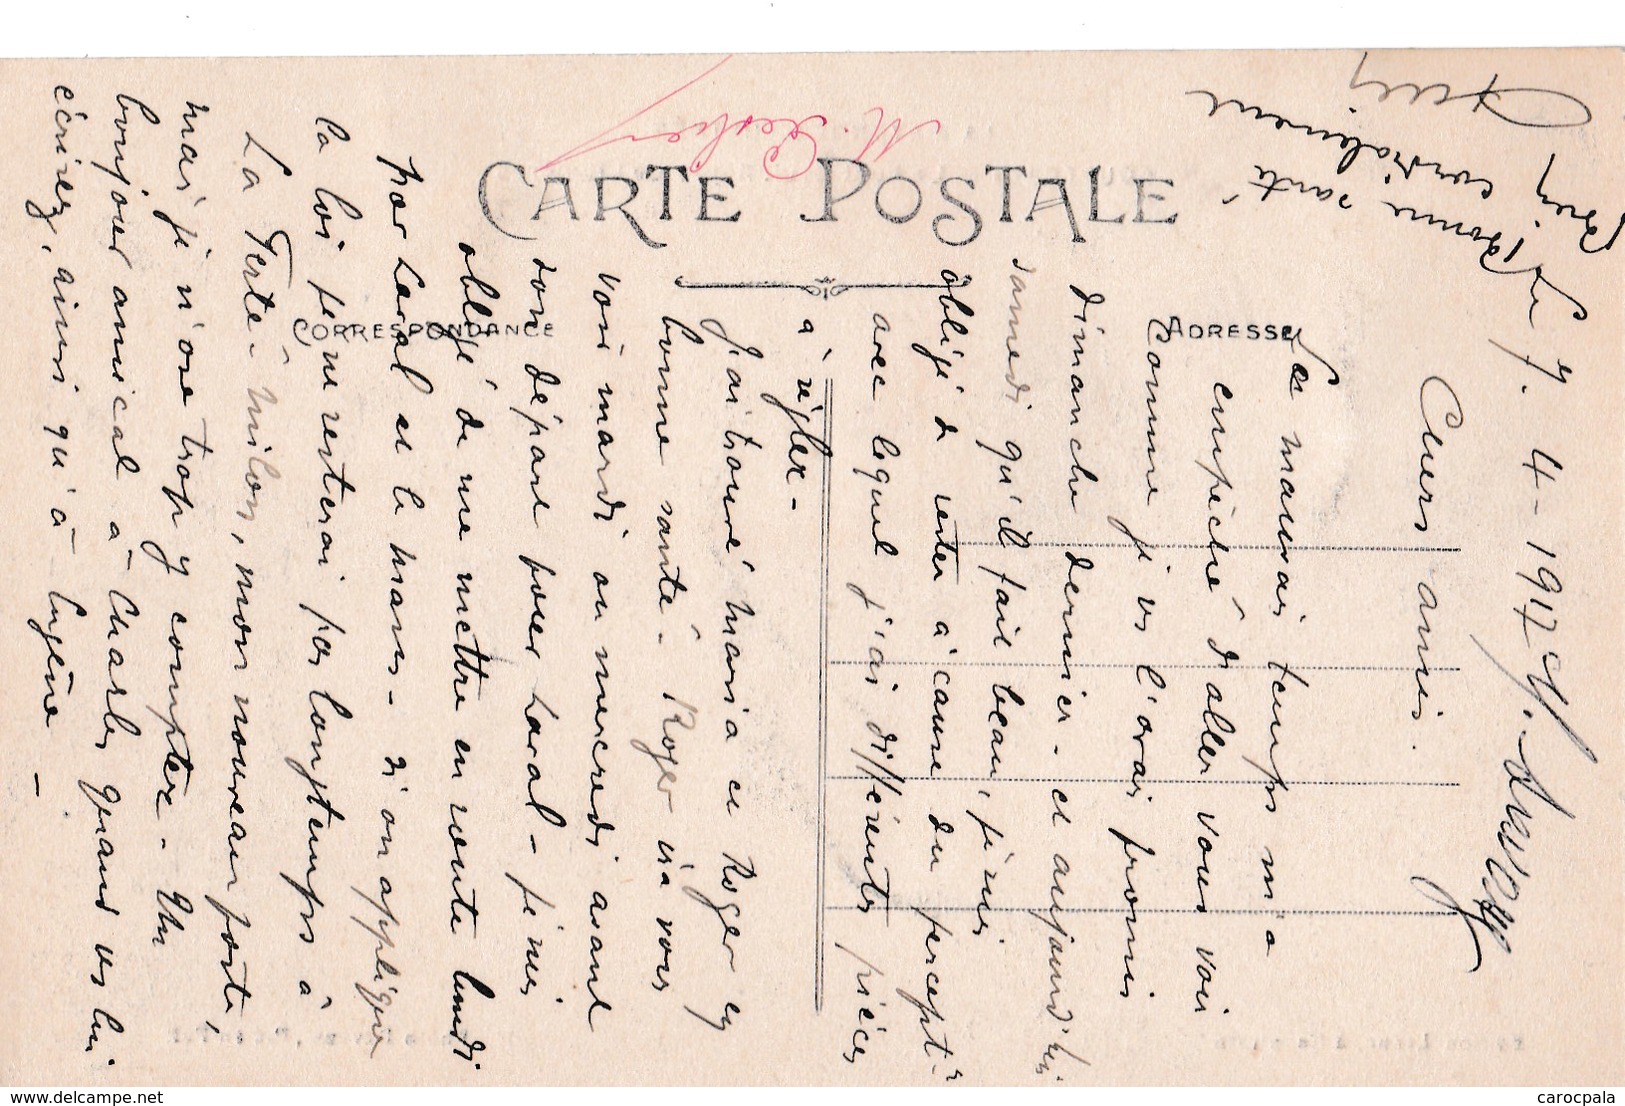 CARTE POSTALE
CORRESPONDANCE
ADRESSE
M.
Le 7. 4 - 1917
Chers amis.
Le mauvais temps m'a
empêché d'aller vous voir
comme je vs l'avais promis
dimanche dernier - et aujourd'hui
samedi qu'il fait beau, je suis
obligé de rester à cause du percept^r
avec lequel j'ai différentes pièces
à régler -
J'ai trouvé Maria et Roger en
bonne santé - Roger ira vous
voir mardi ou mercredi avant
son départ pour Laval - je suis
obligé de me mettre en route lundi
par Laval et le Mans - Si on applique
la loi je ne resterai pas longtemps à
La Ferté-Milon, mon nouveau poste,
mais je n'ose trop y compter - Un
bonjour amical à Charles quand vs lui
écrirez, ainsi qu'à Eugène -
Bonne santé
cordialement
delcampe.net
carocpala